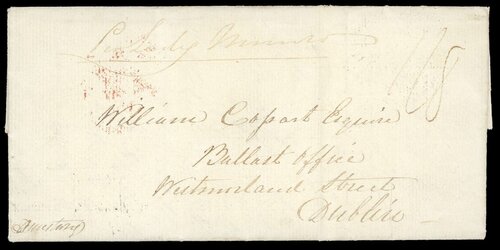 Per Lady Munro
1/8
William Copart Esquire
Ballast Office
Westmorland Street
Dublin